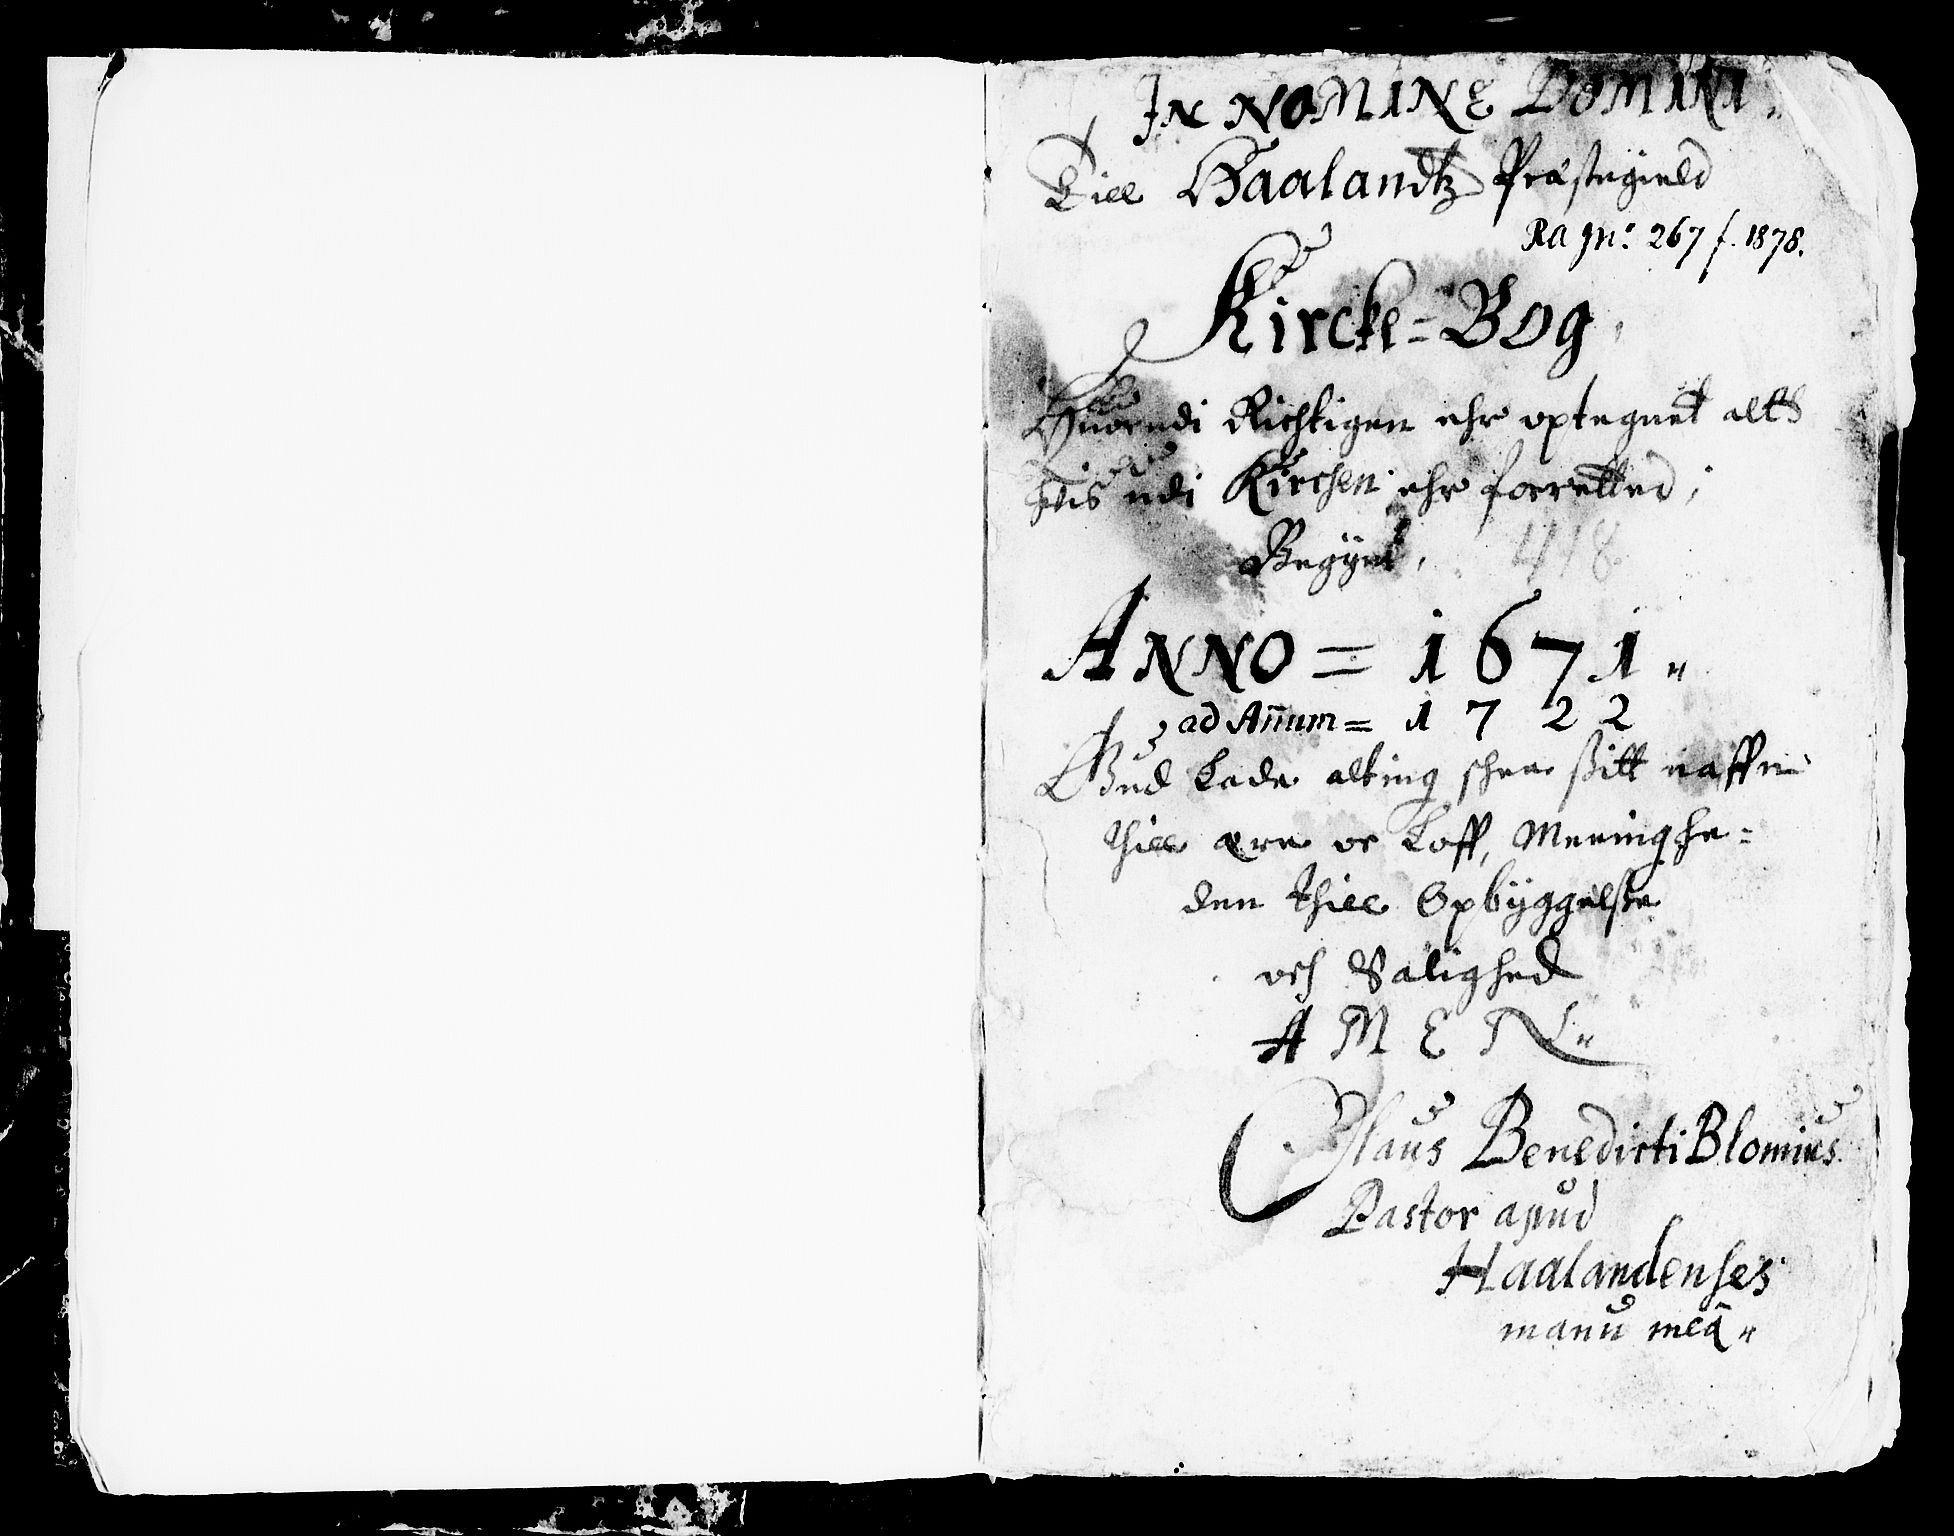 IN NOMINE DOMINI
Till Haalandtz Præstegield
RA No: 267 f. 1878.
Kircke=Bog,
Huorudi Richtigen ehr optegnet alts
hvis udi Kirchen ehr forretted,
Begÿnt, 418
ANNO = 1671
ad Anum = 1722
Gud Lade alting schee sitt naffn
thill ære oc Loff, Meenighe=
den thill Opbÿggelse
och Salighed
AMEN
Olaus Benedicti Blomius
Pastor apud
Haalandenses
manu meâ